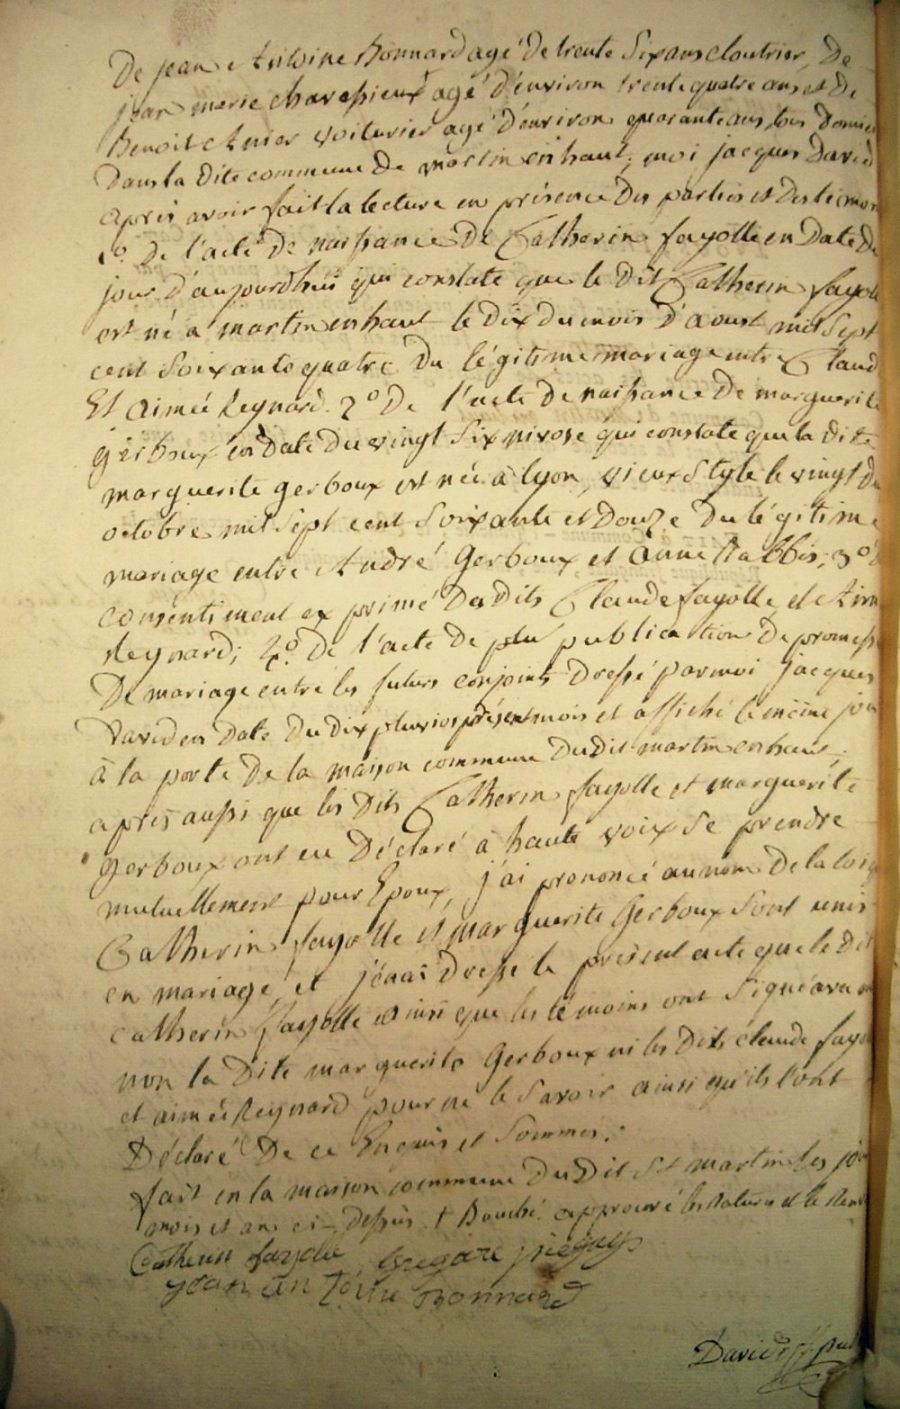 De jean Antoine Bonnard agé De trente Six ans cloutrier, De
jean marie charessieux agé D'environ trente quatre ans et De
Benoit voiturier agé D'environ quarante ans, tous Domici
Dans la Dite commune De martin en haut; moi jacques David
après avoir fait la lecture en présence Des parties et Des témoin
1º De l'acte De naissance De Catherin fayolle en Date Du
jour D'aujourdhui qui constate que le Dit Catherin fayolle
est né a martin en haut le Dix du mois D'aoust mil Sept
cent Soixante quatre Du légitime mariage entre Claud
Et aimée Reynard. 2º De l'acte De naissance De marguerite
gerboux en Date Du vingt Six nivose qui constate que la dite
marguerite gerboux est née à lyon, vieux Style le vingt Du
octobre mil Sept cent Soixante et Douze Du légitime
mariage entre André Gerboux et anne 3º
consentiment exprimé Desdits Claude fayolle et Aim
Reynard; 4º De l'acte De publication De promess
De mariage entre les futurs conjoints Dressé par moi jacques
David en Date Du Dix pluviose présent mois et affiché le même jou
à la porte De la maison commune Dudit martin en haut,
après aussi que les Dits Catherin fayolle et marguerite
gerboux ont eu Déclaré à haute voix Se prendre
mutuellement pour Epoux, j'ai prononcé au nom De la loi q
Catherin fayolle et marguerite Gerboux Sont unis
en mariage, et j'en ai Dressé le présent acte que le Dit
Catherin fayolle ainsi que les témoins ont Signé avec m
non la Dite marguerite Gerboux ni les Dits claude fayo
et aimée Reynard pour ne le Savoir ainsi qu'ils l'ont
Déclaré De ce Enquis et Sommés.
fait en la maison commune Dudit St martin les jou
mois et an ci-Dessus. approuvé les Ratures et le
Catherin fayolle, Gregoire
jean an toine Bonnard
David